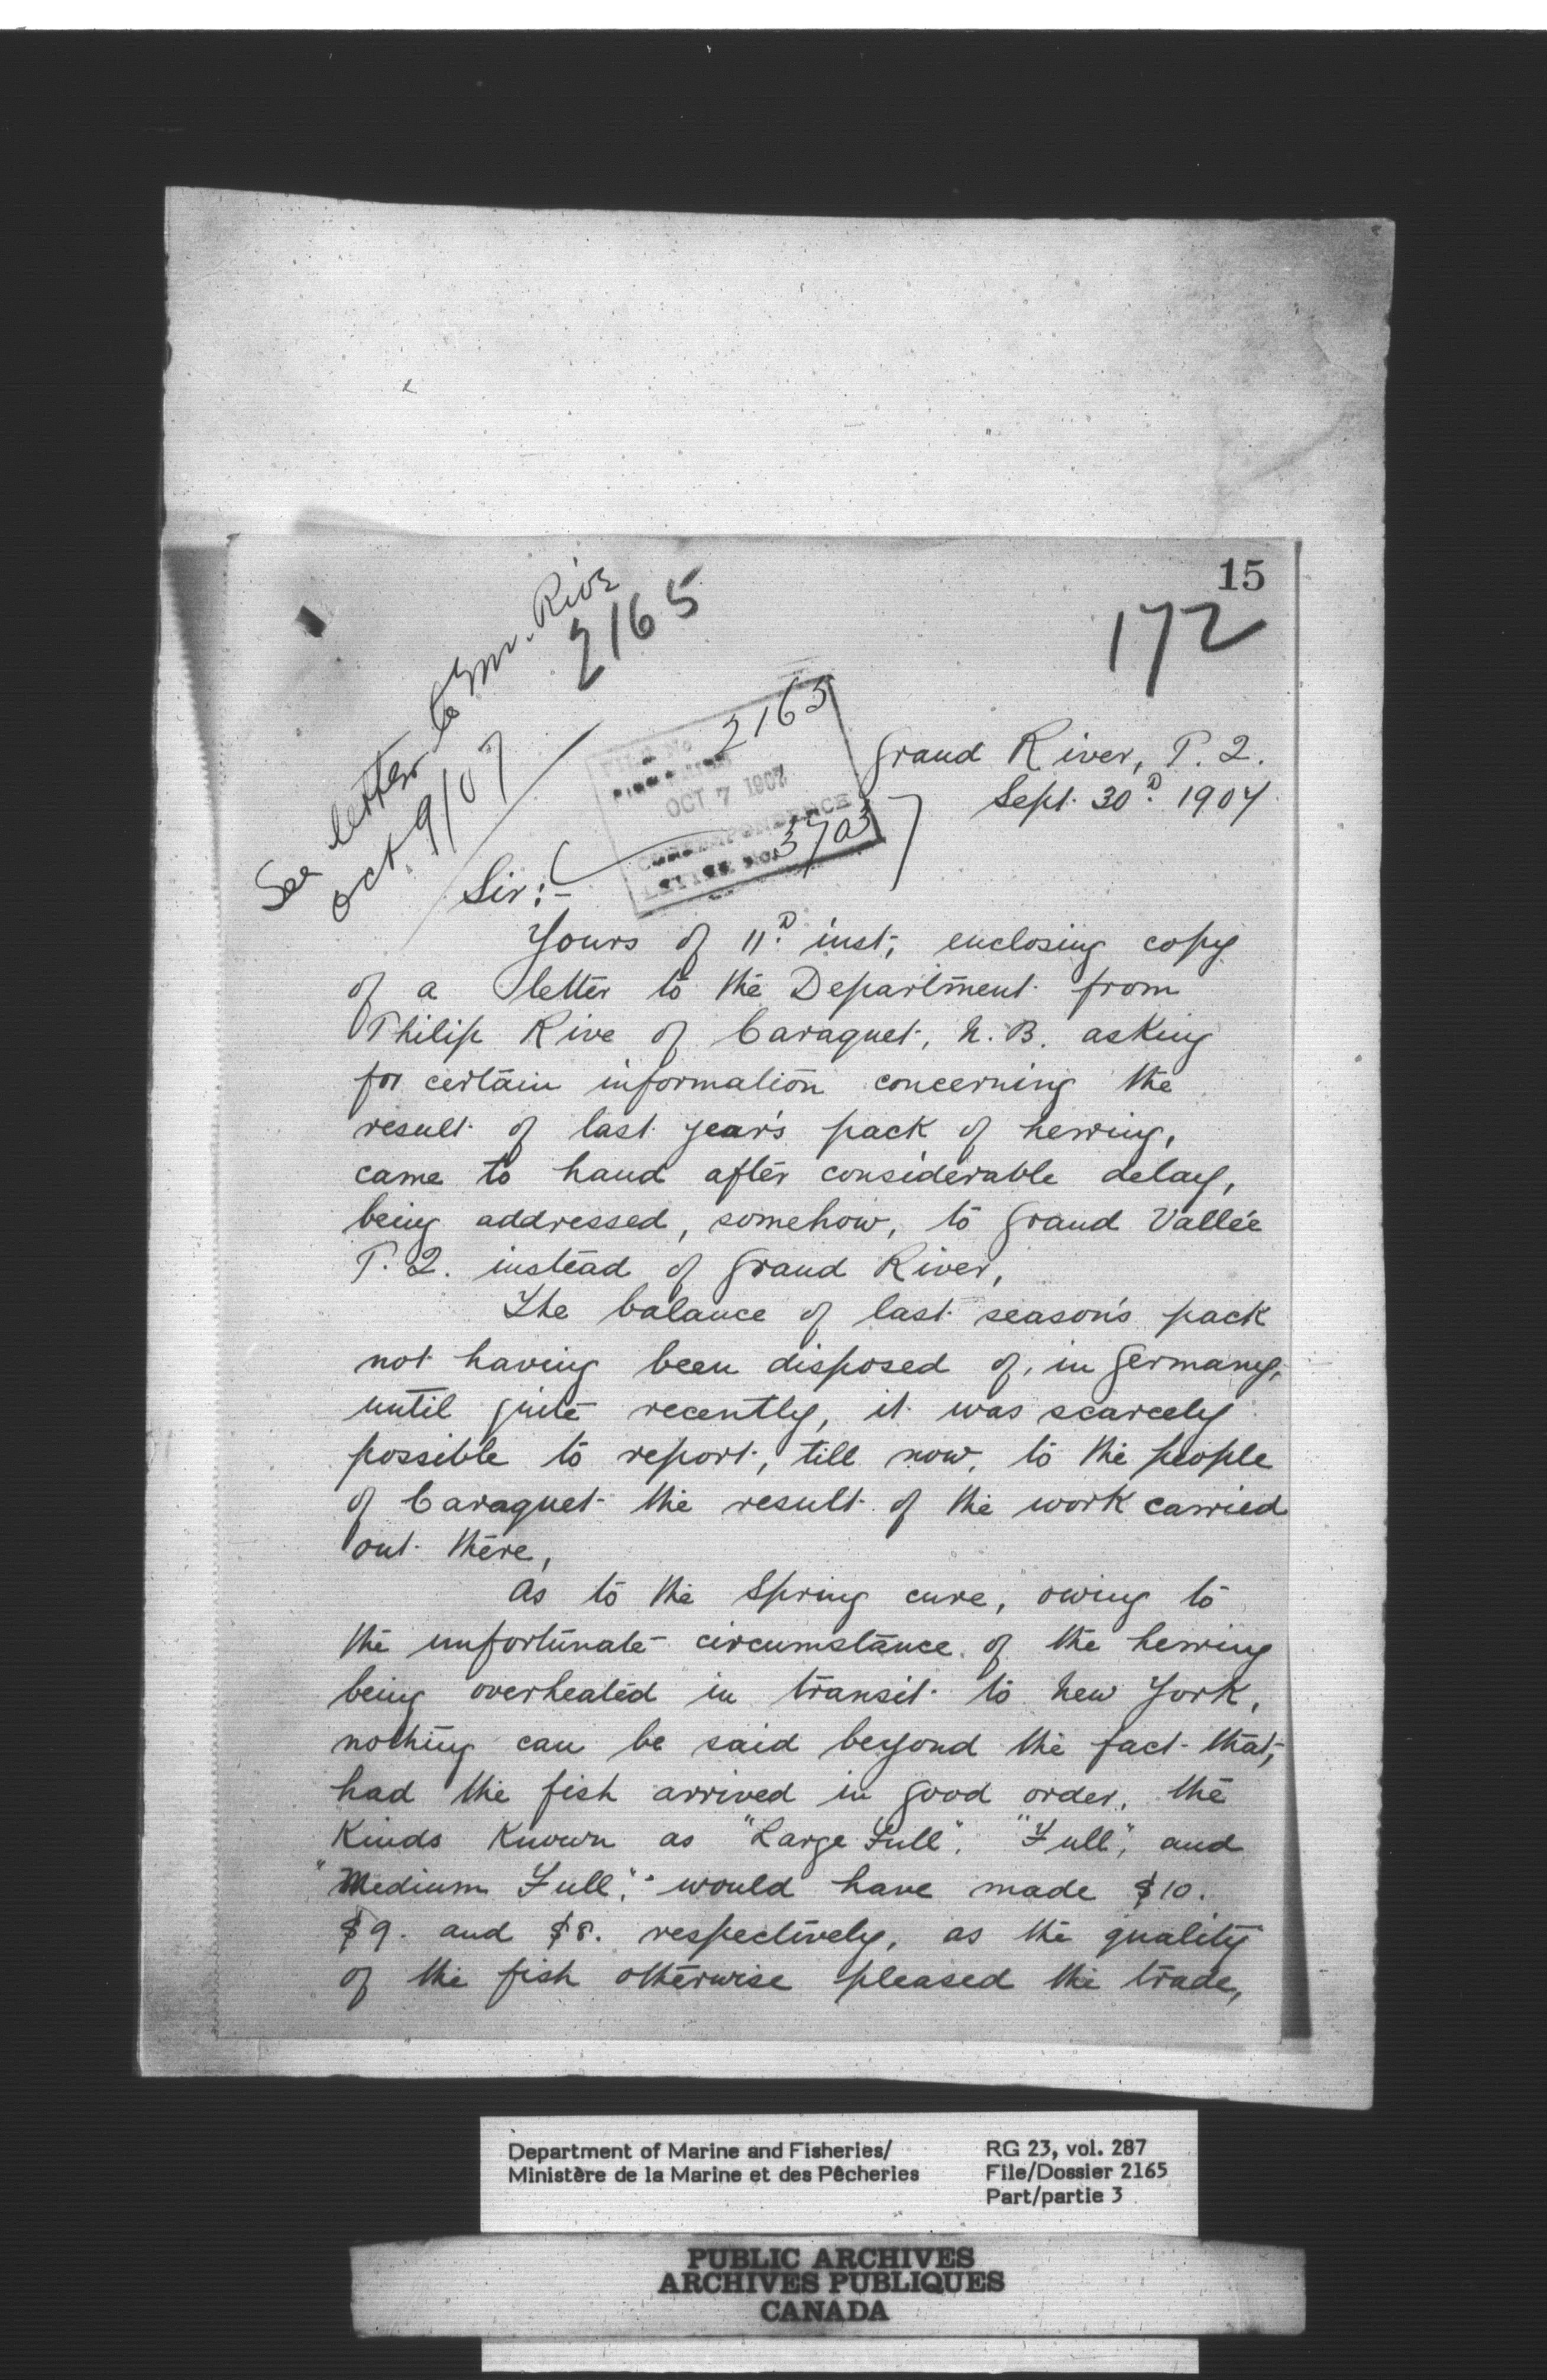 15
172
See letter to Mr. Rive
Oct 9/07
2165
FILE No 2165
FISHERIES
OCT 7 1907
CORRESPONDENCE
LETTER No. 3703
Grand River, P. Q.
Sept. 30th 1907
Sir:-
Yours of 11th inst, enclosing copy
of a letter to the Department from
Philip Rive of Caraquet, N. B. asking
for certain information concerning the
result of last year's pack of herring,
came to hand after considerable delay,
being addressed, somehow, to Grand Vallée
P. Q. instead of Grand River,
The balance of last season's pack
not having been disposed of, in Germany,
until quite recently, it was scarcely
possible to report, till now, to the people
of Caraquet the result of the work carried
out there,
As to the Spring cure, owing to
the unfortunate circumstance of the herring
being overheated in transit to New York,
nothing can be said beyond the fact that,
had the fish arrived in good order, the
kinds known as "Large Full", "Full", and
"Medium Full", would have made $10.
$9. and $8. respectively, as the quality
of the fish otherwise pleased the trade,
Department of Marine and Fisheries/
Ministère de la Marine et des Pêcheries
RG 23, vol. 287
File/Dossier 2165
Part/partie 3
PUBLIC ARCHIVES
ARCHIVES PUBLIQUES
CANADA